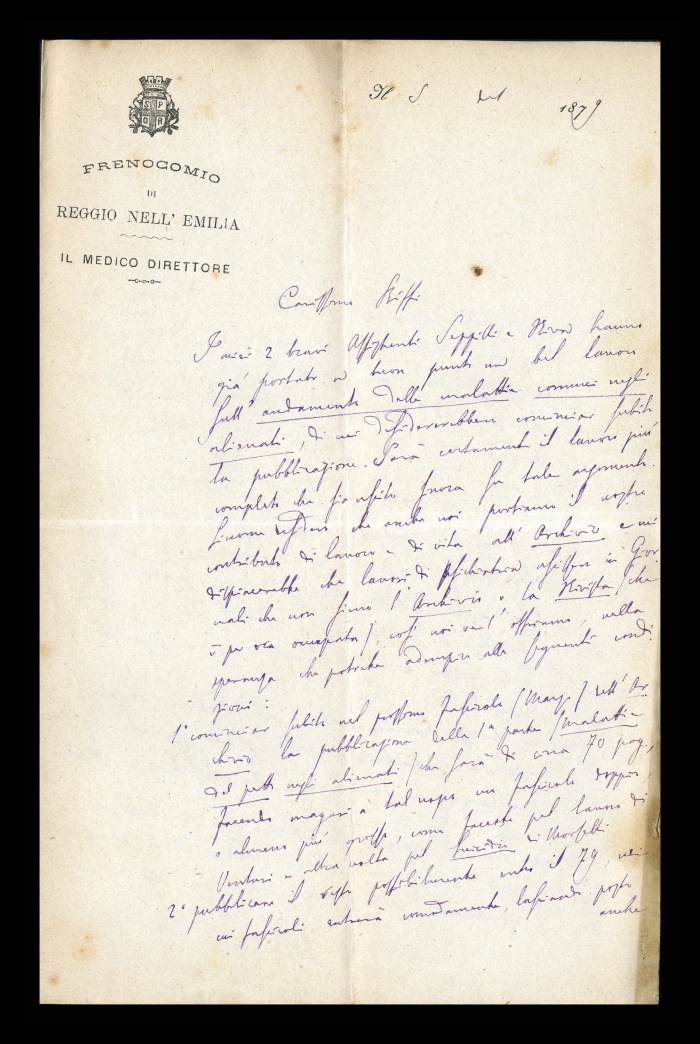 S P
Q R
FRENOCOMIO
DI
REGGIO NELL' EMILIA
IL MEDICO DIRETTORE
Il 5 1879
Carissimo Biffi
I miei 2 bravi Assistenti Seppilli e Riva hanno
già portato a buon punto un bel lavoro
sull' andamento delle malattie comuni negli
alienati, di cui desidererebbero cominciar subito
la pubblicazione. Sarà certamente il lavoro più
completo che sia uscito finora su tale argomento.
Siccome desidero che anche noi portiamo il nostro
contributo di lavoro e di vita all' Archivio e mi
dispiacerebbe che lavori di psichiatria uscissero in Gior
nali che non siano l' Archivio o la Rivista (che
è per ora occupata), così noi ve l' offriamo, nella
speranza che potrete adempire alle seguenti condi
zioni:
1° cominciar subito nel prossimo fascicolo (Marzo) dell' Ar
chivio la pubblicazione della 1a parte (malattie
del petto negli alienati) che sarà di circa 70 pag.,
facendo magari a tal uopo un fascicolo doppio,
o almeno più grosso, come faceste pel lavoro di
Venturi e altra volta pel Suicidio di Morselli
2° pubblicare il resto possibilmente entro il 79, nei
cui fascicoli entrerà comodamente, lasciando posto
anche